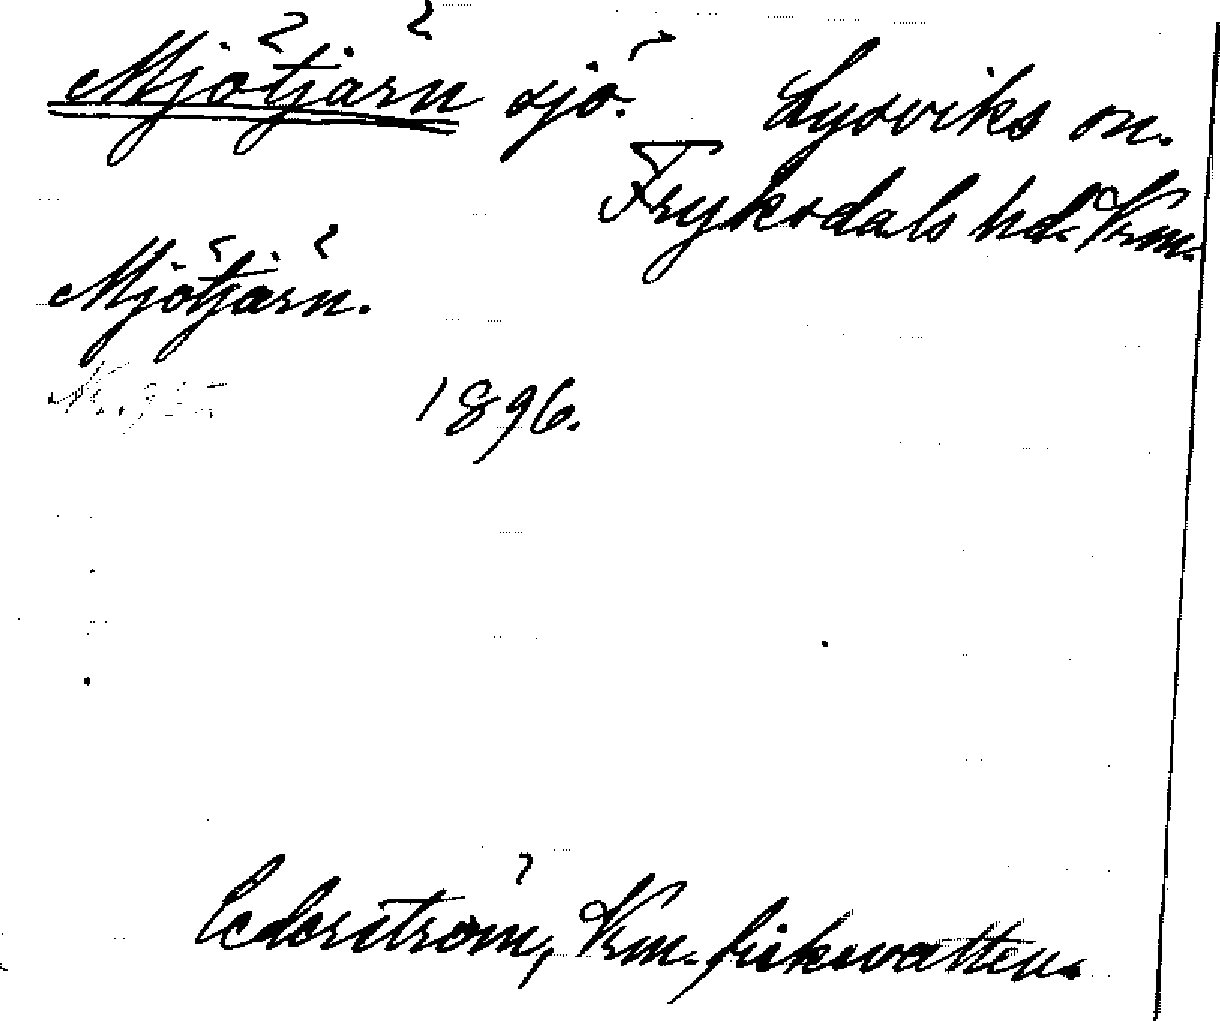 Mjötjärn sjö. Lysviks sn.
Fryksdals hd. Vrm.
Mjötjärn.
1896.
Cederström, Vrm. fiskevatten.